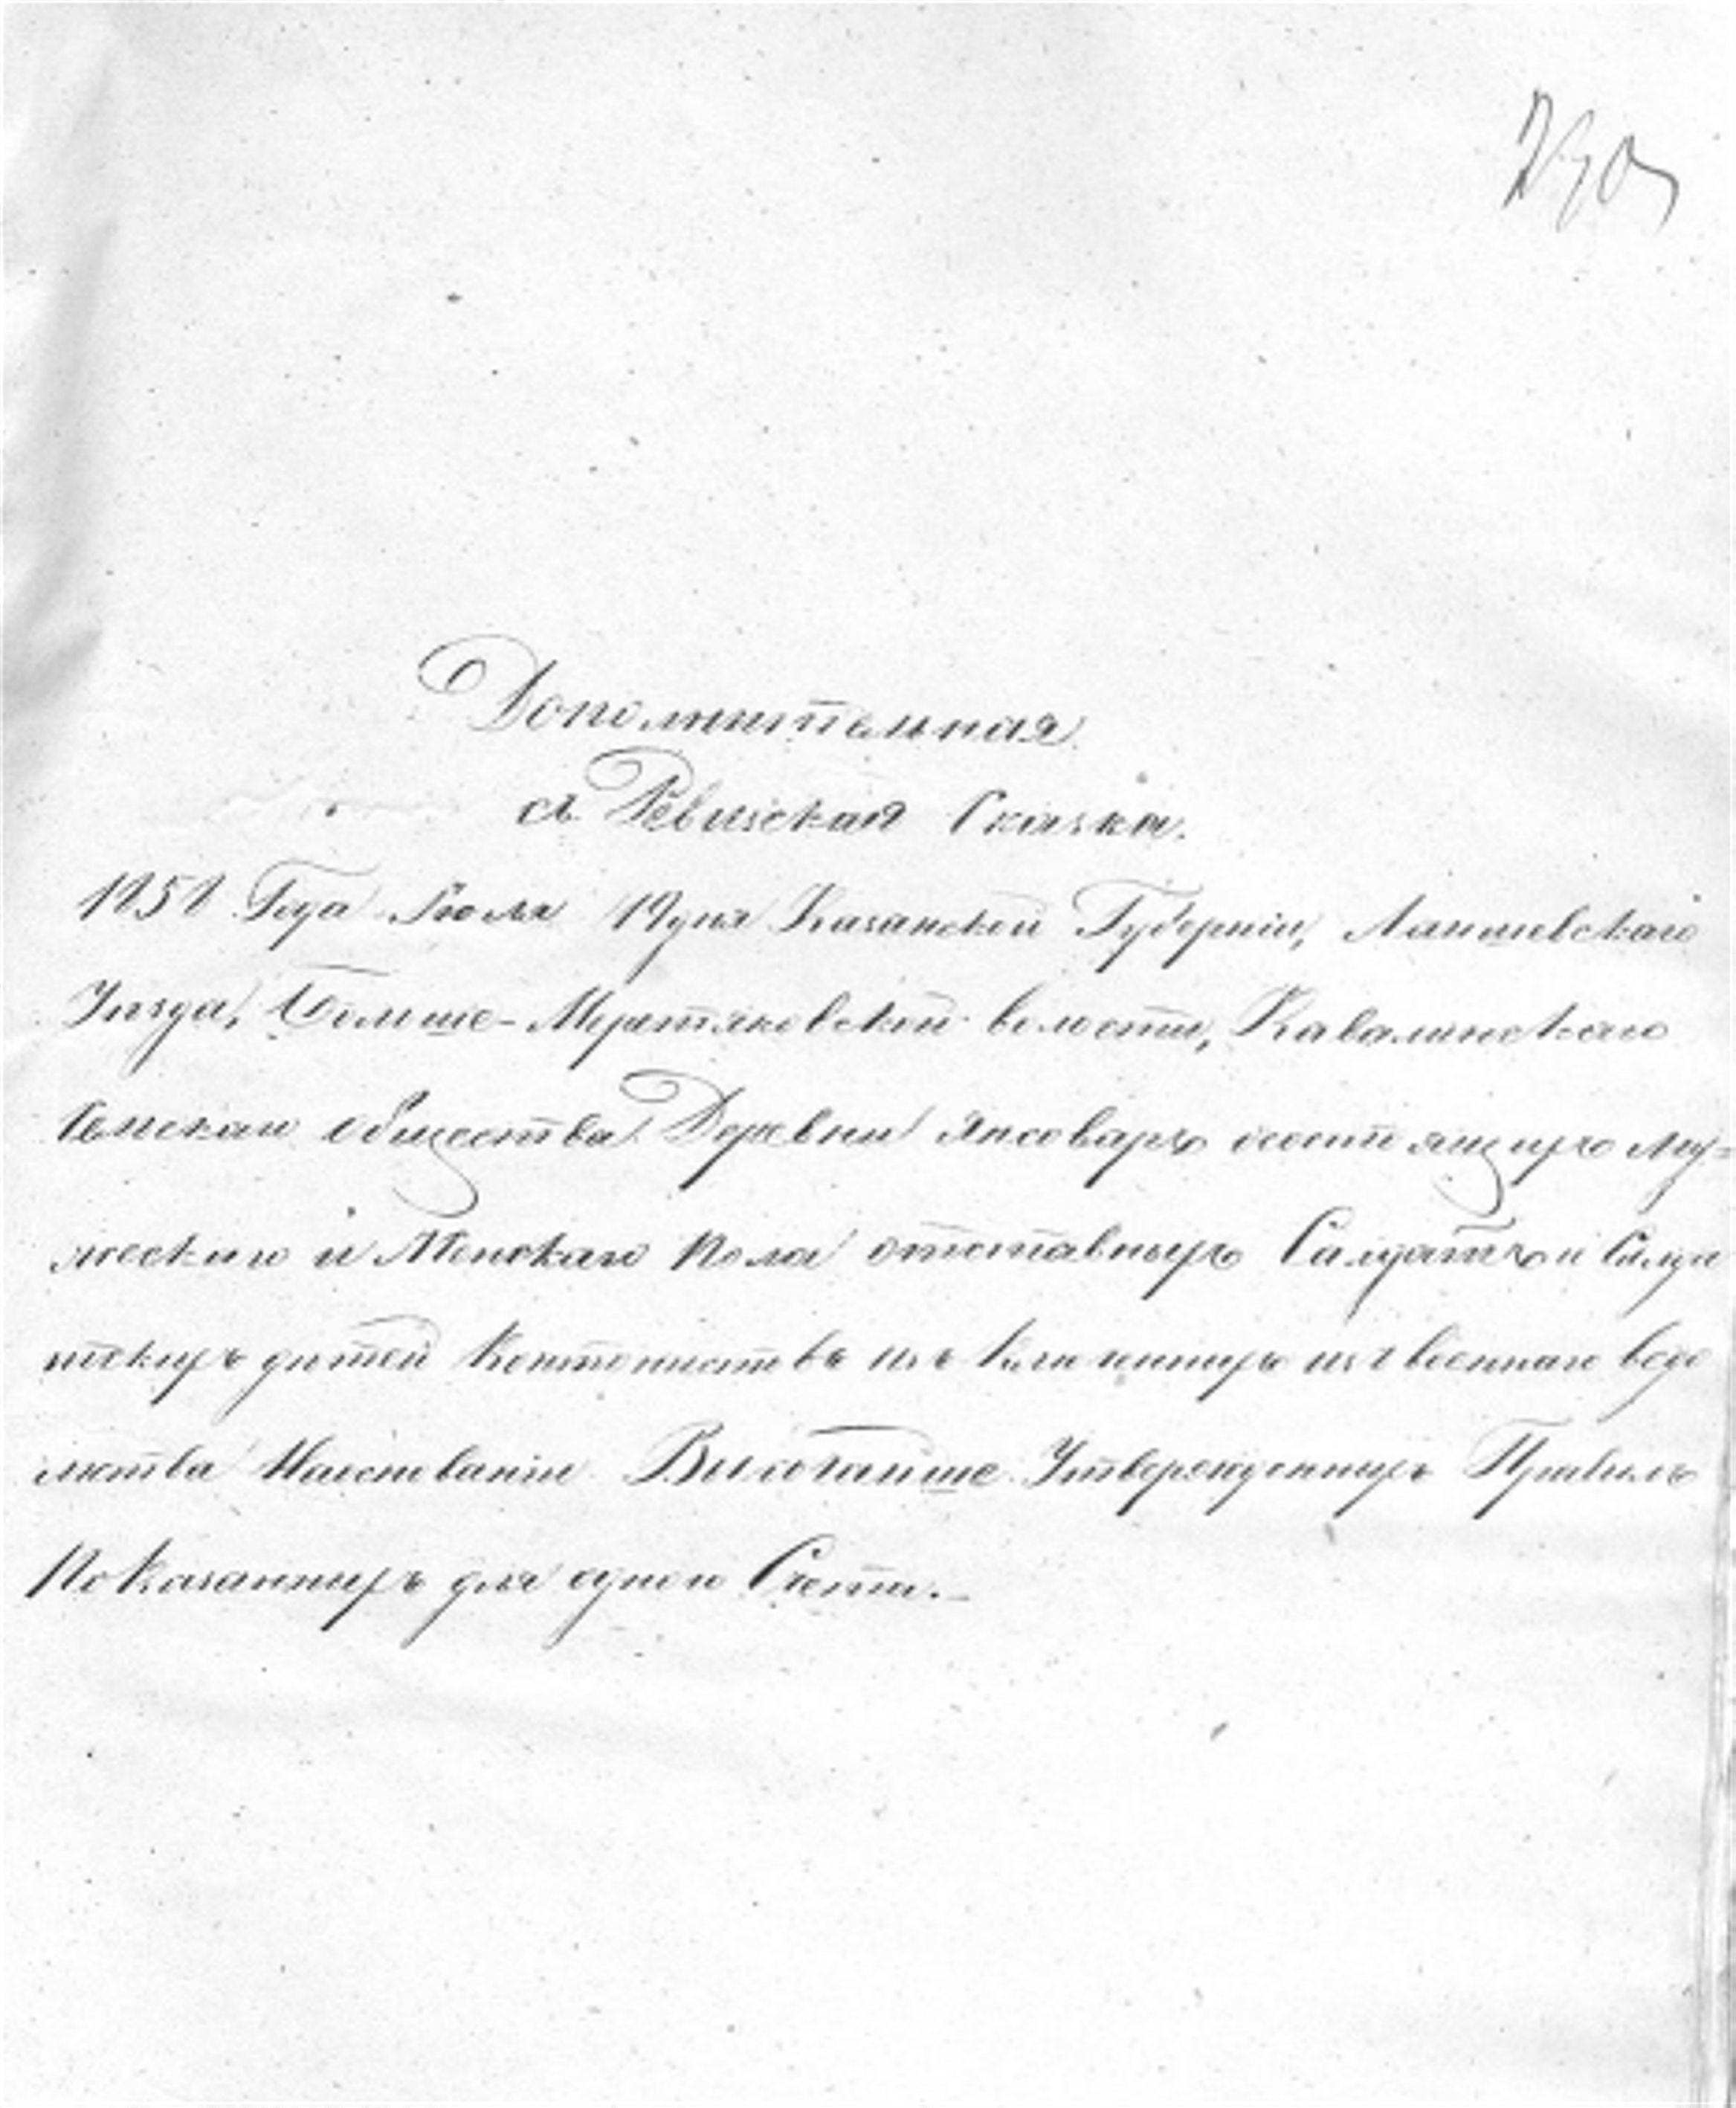 Дополнительная
Ревизская Сказка.
Года Июля дня Казанской Губерніи, Лаишевскаго
Уѣзда, Больше-Меретяковской волости, Кавалинскаго
общества Деревни Янсоваръ состоящихъ Му=
жескаго и Женскаго Пола отставныхъ Салдатъ и Салда
тскихъ дѣтей Кантонистовъ изключенныхъ изъ военнаго вѣдо
мства Высочайше Утвержденныхъ Правилъ
Показанныхъ для одного Счета.